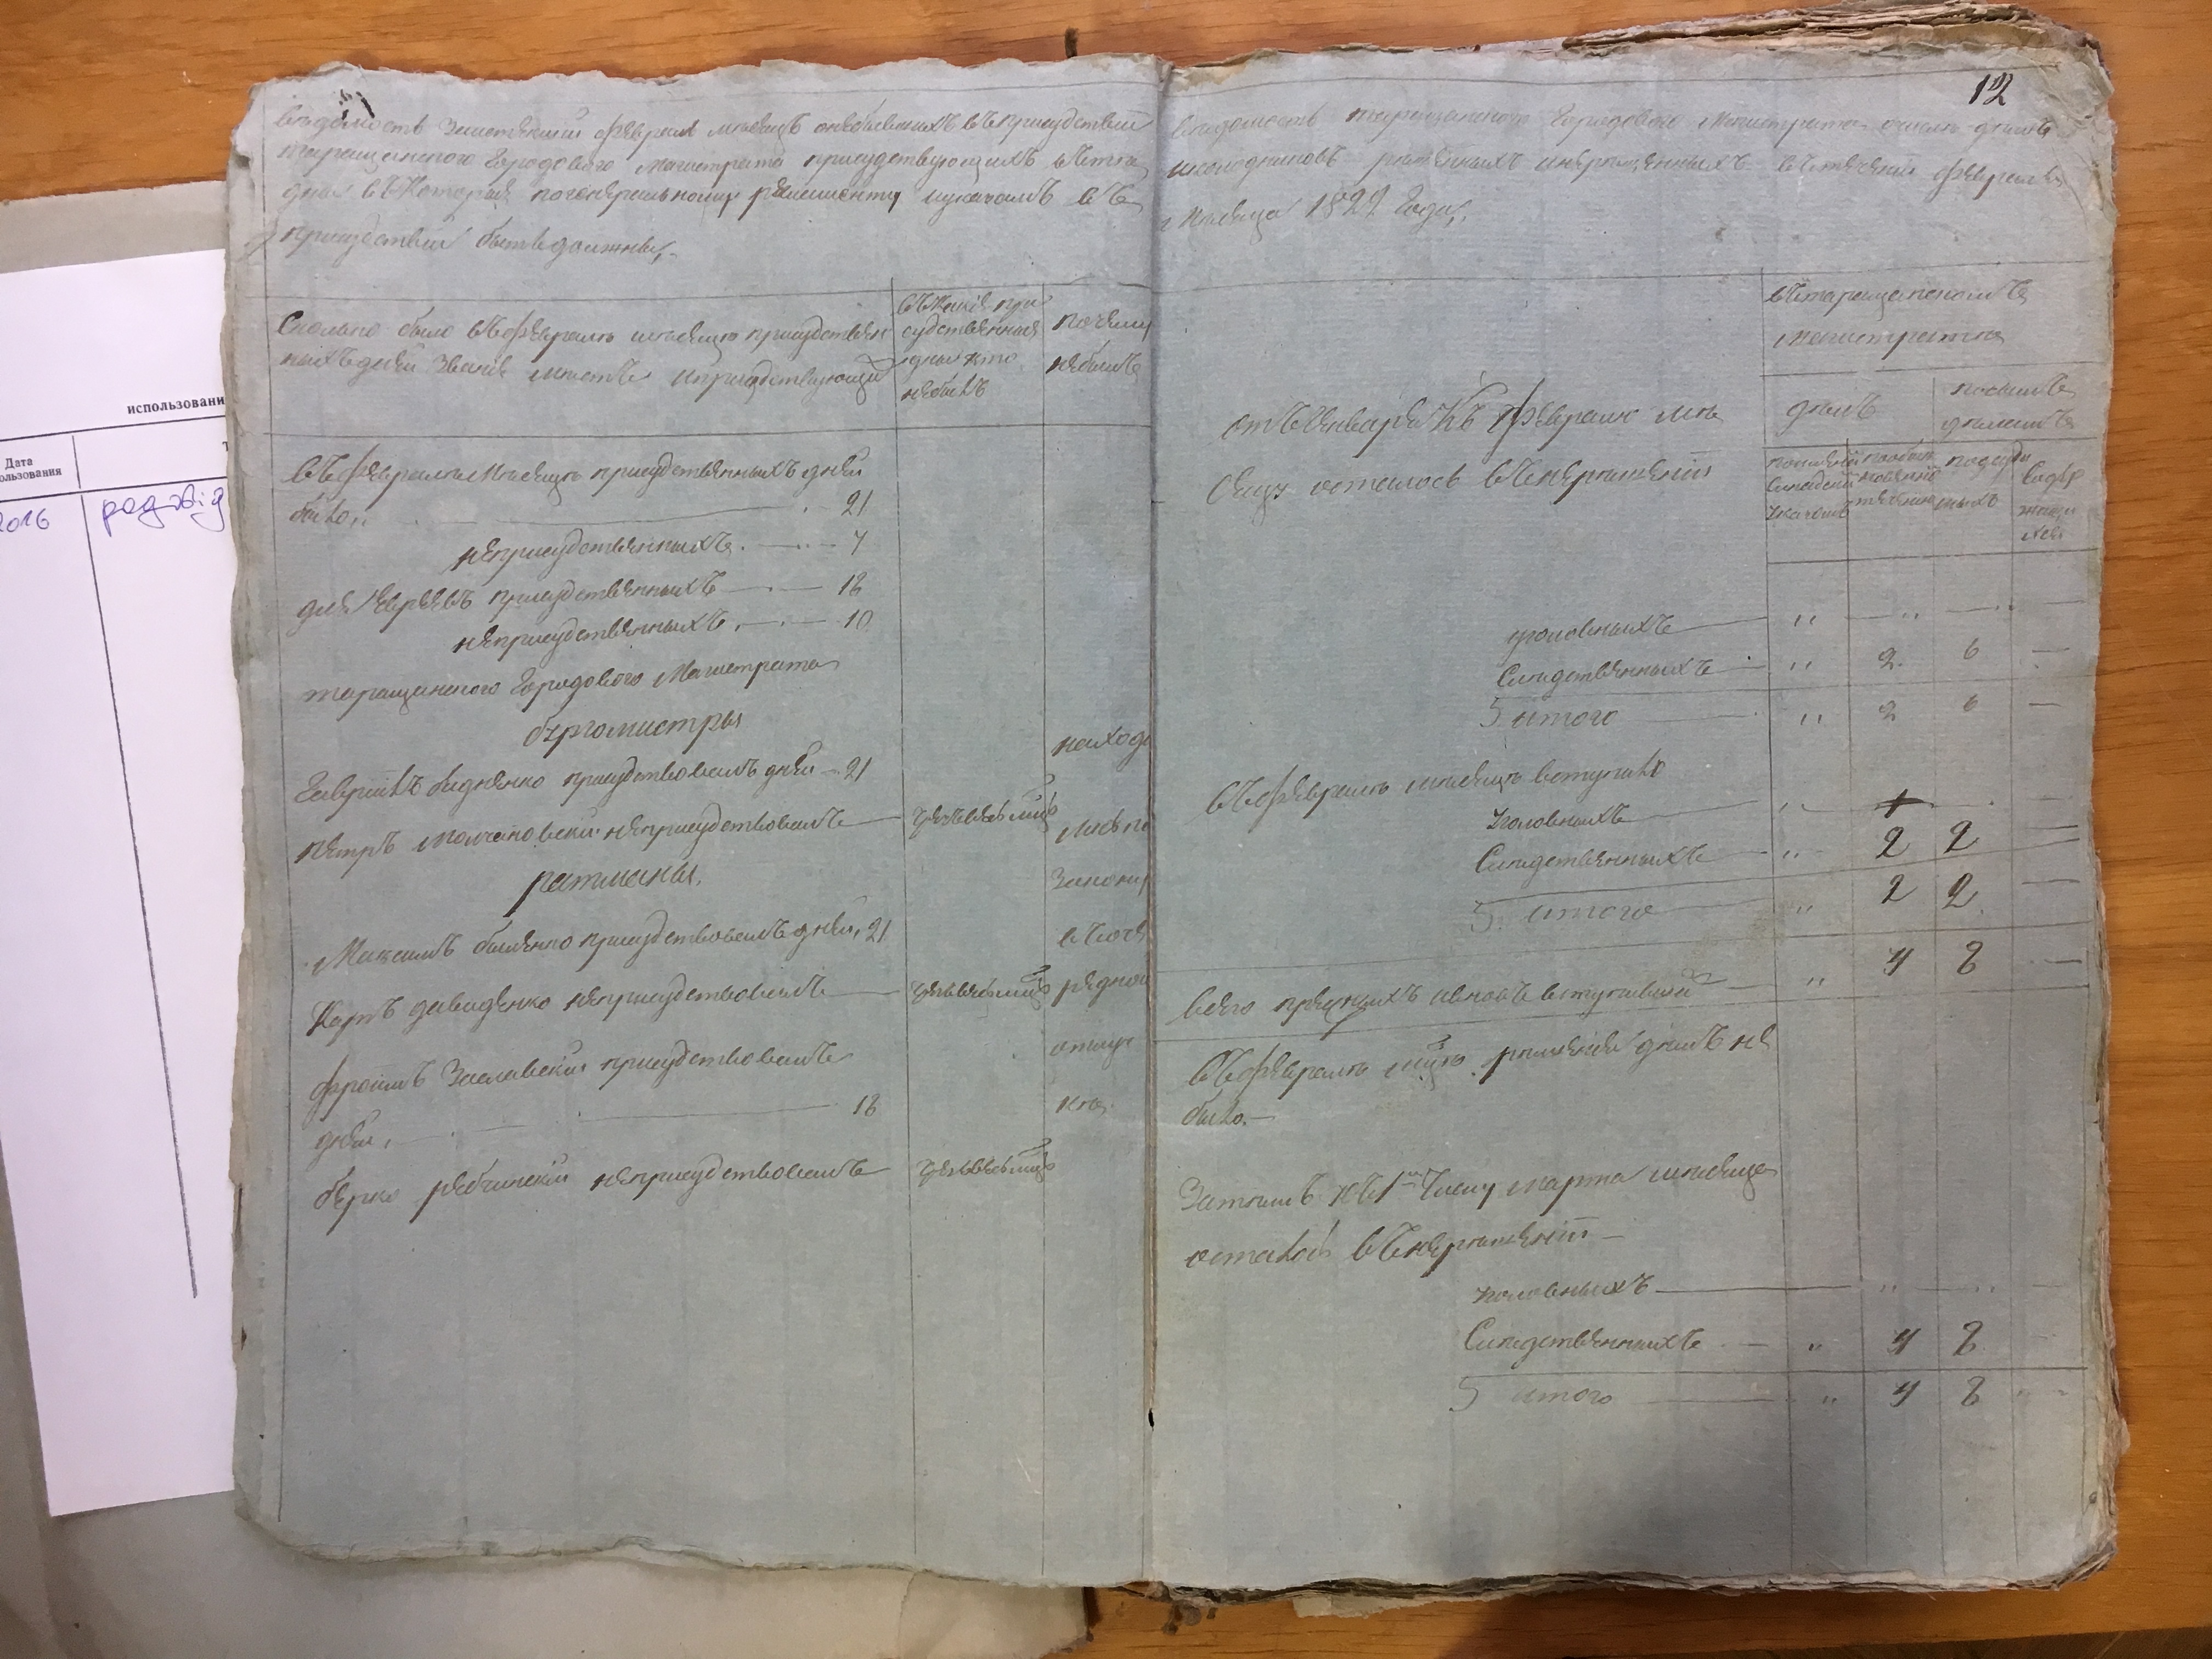 использовани
Дата
ользования
2016
12
Ведомость Заистекший Февраль месяцъ онебывшихъ въ присудствии
таращанского Городового Магистрата присудствующихъ въте
дни въ Которыя погенеральному регламенту иуказамъ въ
присудствии быть должны,
Сколько было въ Феврале месяце присудствен
ныхъ дней Звание местъ иприсудствующии
въ Какие при
судственныя
дни кто
небылъ
почему
небылъ
въ Феврале месяце присудственныхъ дней
было,, 21
неприсудственныхъ 7
для Евреевъ присудственныхъ 18
неприсудственныхъ 10
таращанского Городового Магистрата
бургомистры
Гаврiилъ Бедненко присудствовалъ дней 21
петръ Молчановски неприсудствовалъ
ратманы.
Максимъ Билленко присудствовалъ дней, 21
Карпъ давиденко неприсудствовалъ
Фроимъ Заславски присудствовалъ
дней, 18
берко рябчински неприсудствовалъ
находи
Законну
въоче
редной
отлуч
ке.
Ведомость таращанского Городового Магистрата очисле делъ
иколодниковъ решенныхъ инерешенныхъ въ течении Февраля
Месяца 1822 Года,
въ таращанскомъ
магистрате
делъ
посимъ
деламъ
отъ Января Къ Февралю ме
сяцу осталось въ Нерешении
уголовныхъ
Следственныхъ " 2 6
итого " 2 6
въ Феврале месяце вступило
уголовныхъ
Следственныхъ " 2 2
итого " 2 2
всего прежнихъ ивновь вступившихъ " 4 8
въ Феврале мце решения делъ не
было.
Затемъ къ 1 Числу марта месяца
осталось въ Нерешении
уголовныхъ
Следственныхъ " 4 8
итого " 4 8